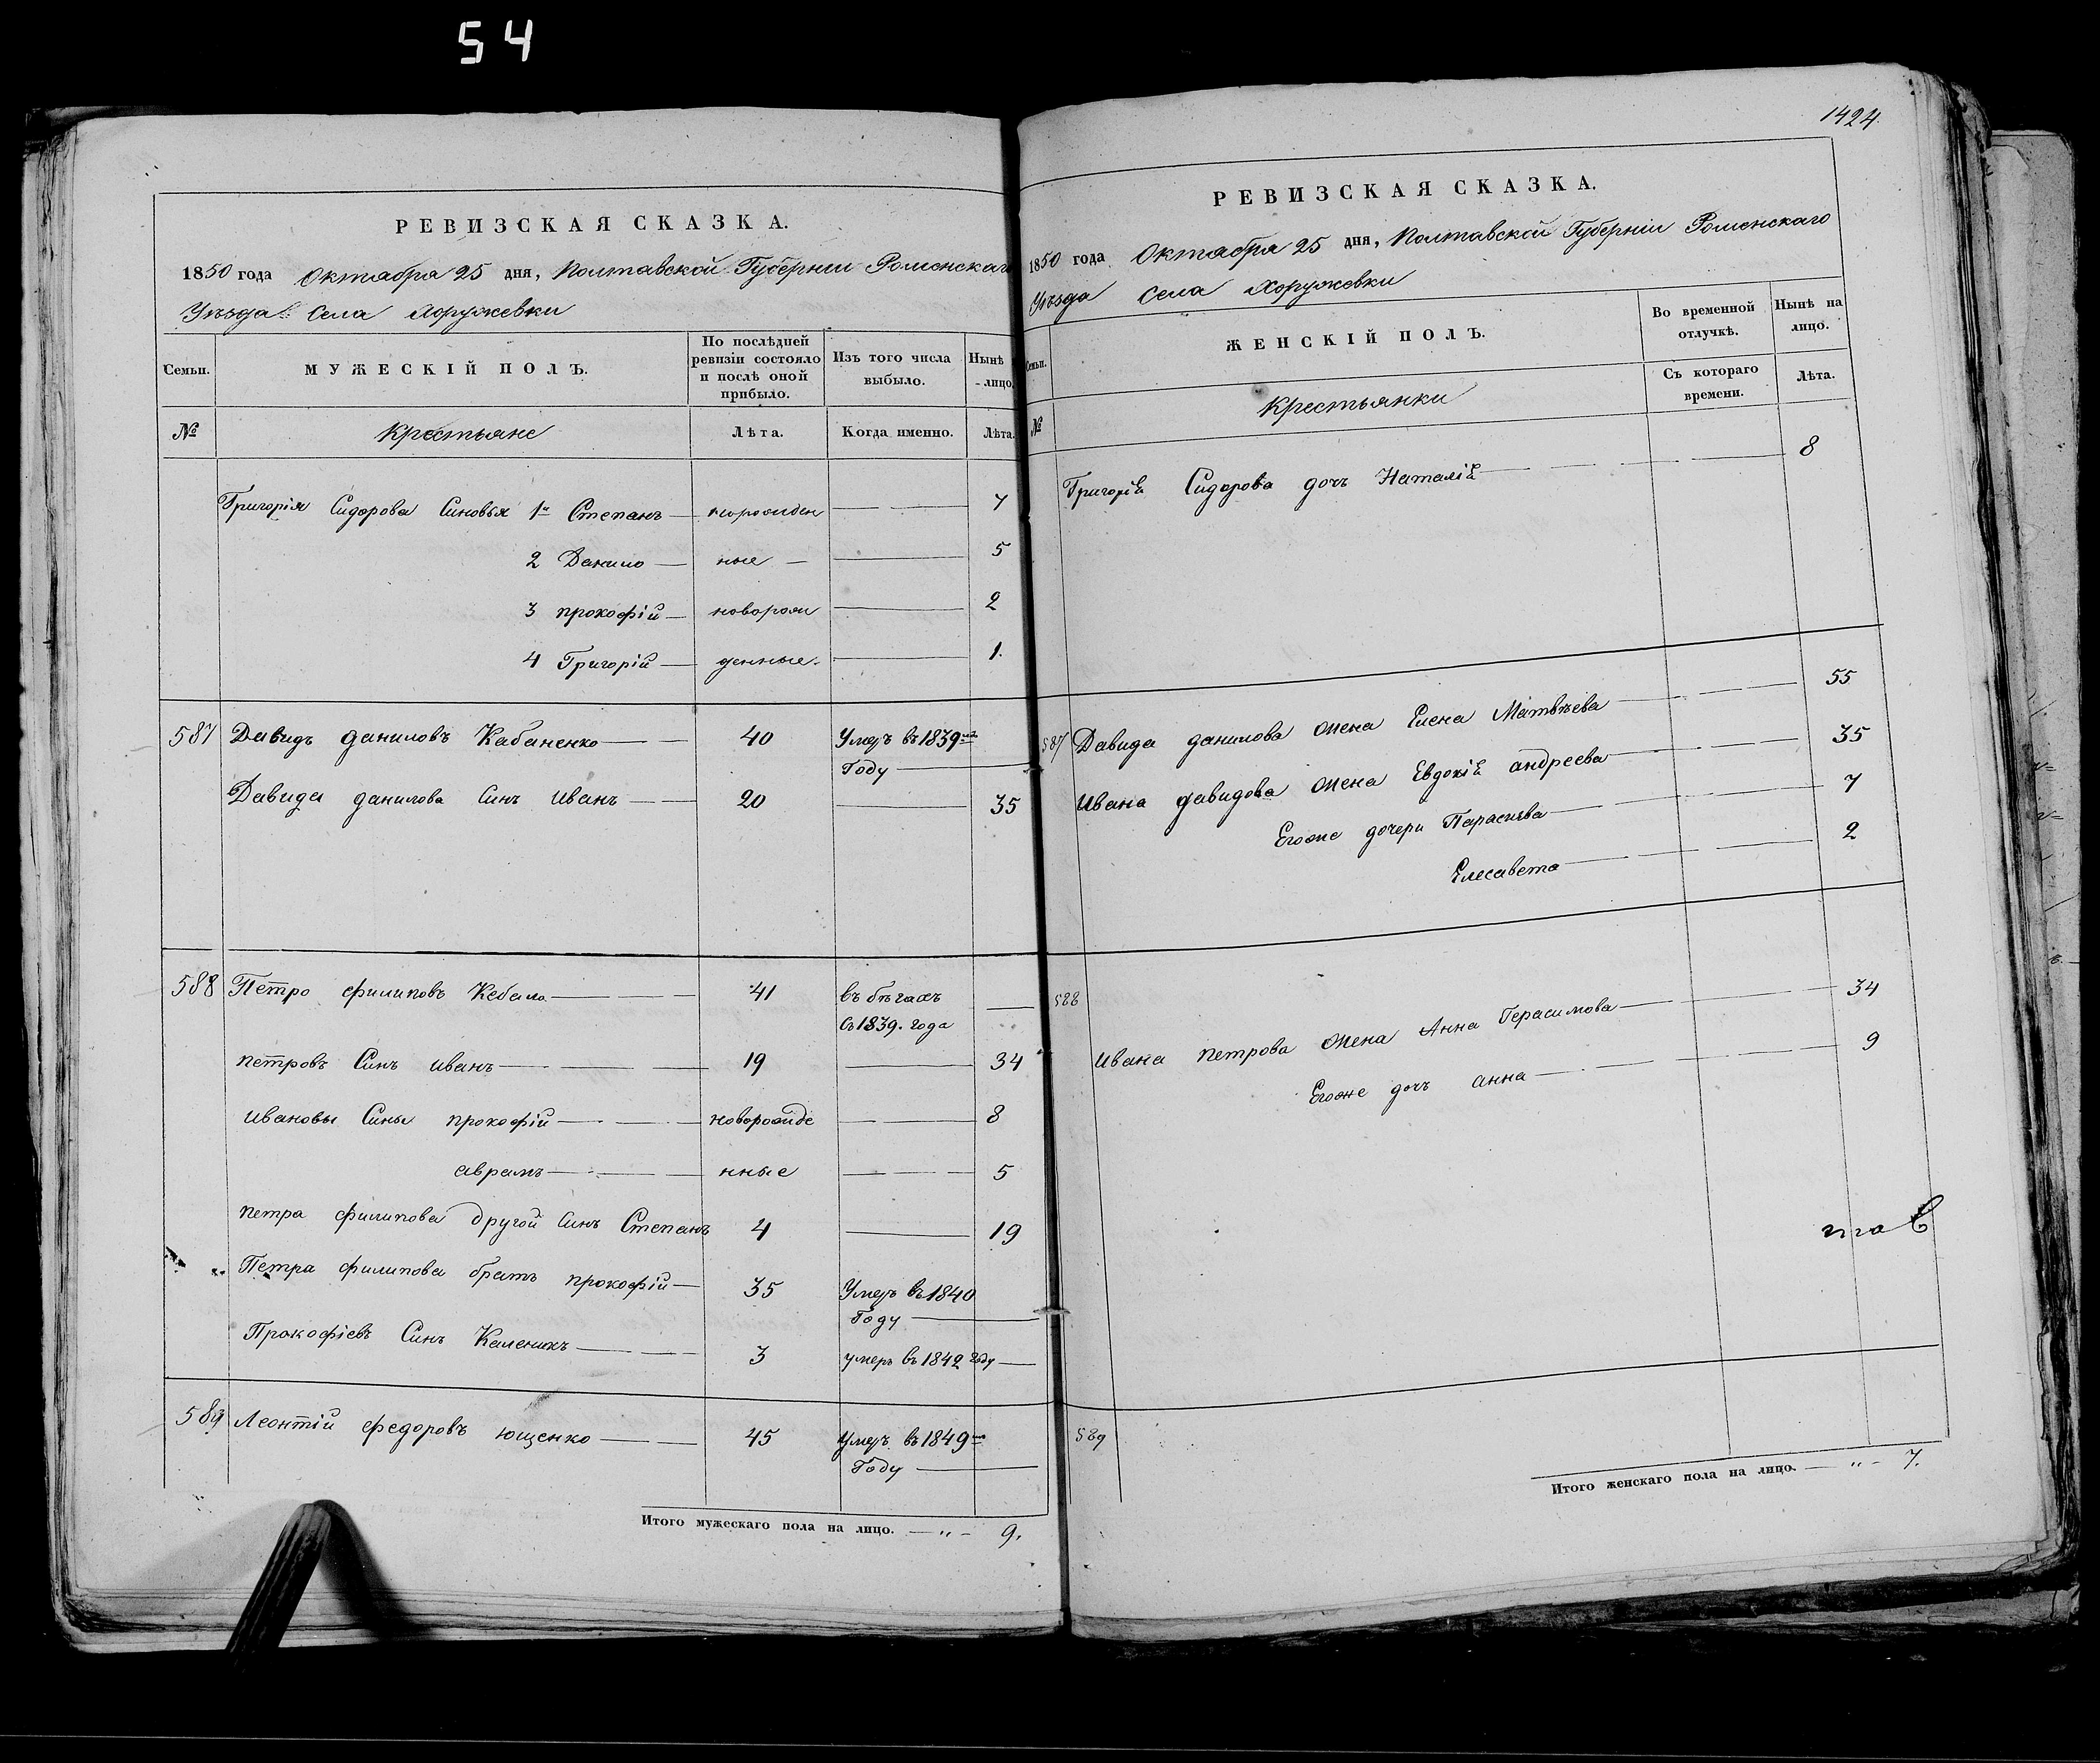 54
РЕВИЗСКАЯ СКАЗКА.
1850 года Октября 25 дня, Полтавской Губернии Роменскаго
Уѣзда Села Хоружевки
Семьи.
МУЖЕСКІЙ ПОЛЪ.
По послѣдней ревизіи состояло и послѣ оной прибыло.
Изъ того числа выбыло.
Нынѣ -лицо.
№ Крестьяне Лѣта. Когда именно. Лѣта.
Григорія Сидорова Синовья 1й Степанъ 7
2 Данило ные 5
3 прокофій поворож 2
4 Григорій денные 1.
587 Давидъ даниловъ Кабаненко 40 Умеръ въ 1839м
Году
Давида данилова Синъ Иванъ 20 35
588 Петро филиповъ Кебало 41 въ бѣгахъ
съ 1839. года
петровъ Синъ иванъ 19 34
ивановы Сины прокофій новорожде 8
аврамъ нные 5
петра филипова другой Синъ Степанъ 4 19
Петра филипова братъ прокофій 35 Умеръ въ 1840
Году
Прокофіевъ Синъ Каленикъ 3 умеръ въ 1842 году
589 Леонтій федоровъ ющенко 45 Умеръ въ 1849м
Году
Итого мужескаго пола на лицо. — „ - 9.
1424.
РЕВИЗСКАЯ СКАЗКА.
1850 года Октября 25 дня, Полтавской Губерніи Роменскаго
Уѣзда Села Хоружевки
Семьи.
ЖЕНСКІЙ ПОЛЪ.
Во временной отлучкѣ.
Нынѣ на лицо.
№ Крестьянки
Съ котораго времени.
Лѣта.
Григорія Сидорова дочъ Наталія 8
587 Давида данилова жена Елена Матвѣева 55
Ивана давидова жена Евдокія андреева 35
Егоже дочери Параскева 7
Елесавета 2
588
ивана петрова жена Анна Герасимова 34
Егоже дочъ анна 9
589
Итого женскаго пола на лицо. — „ - 7.